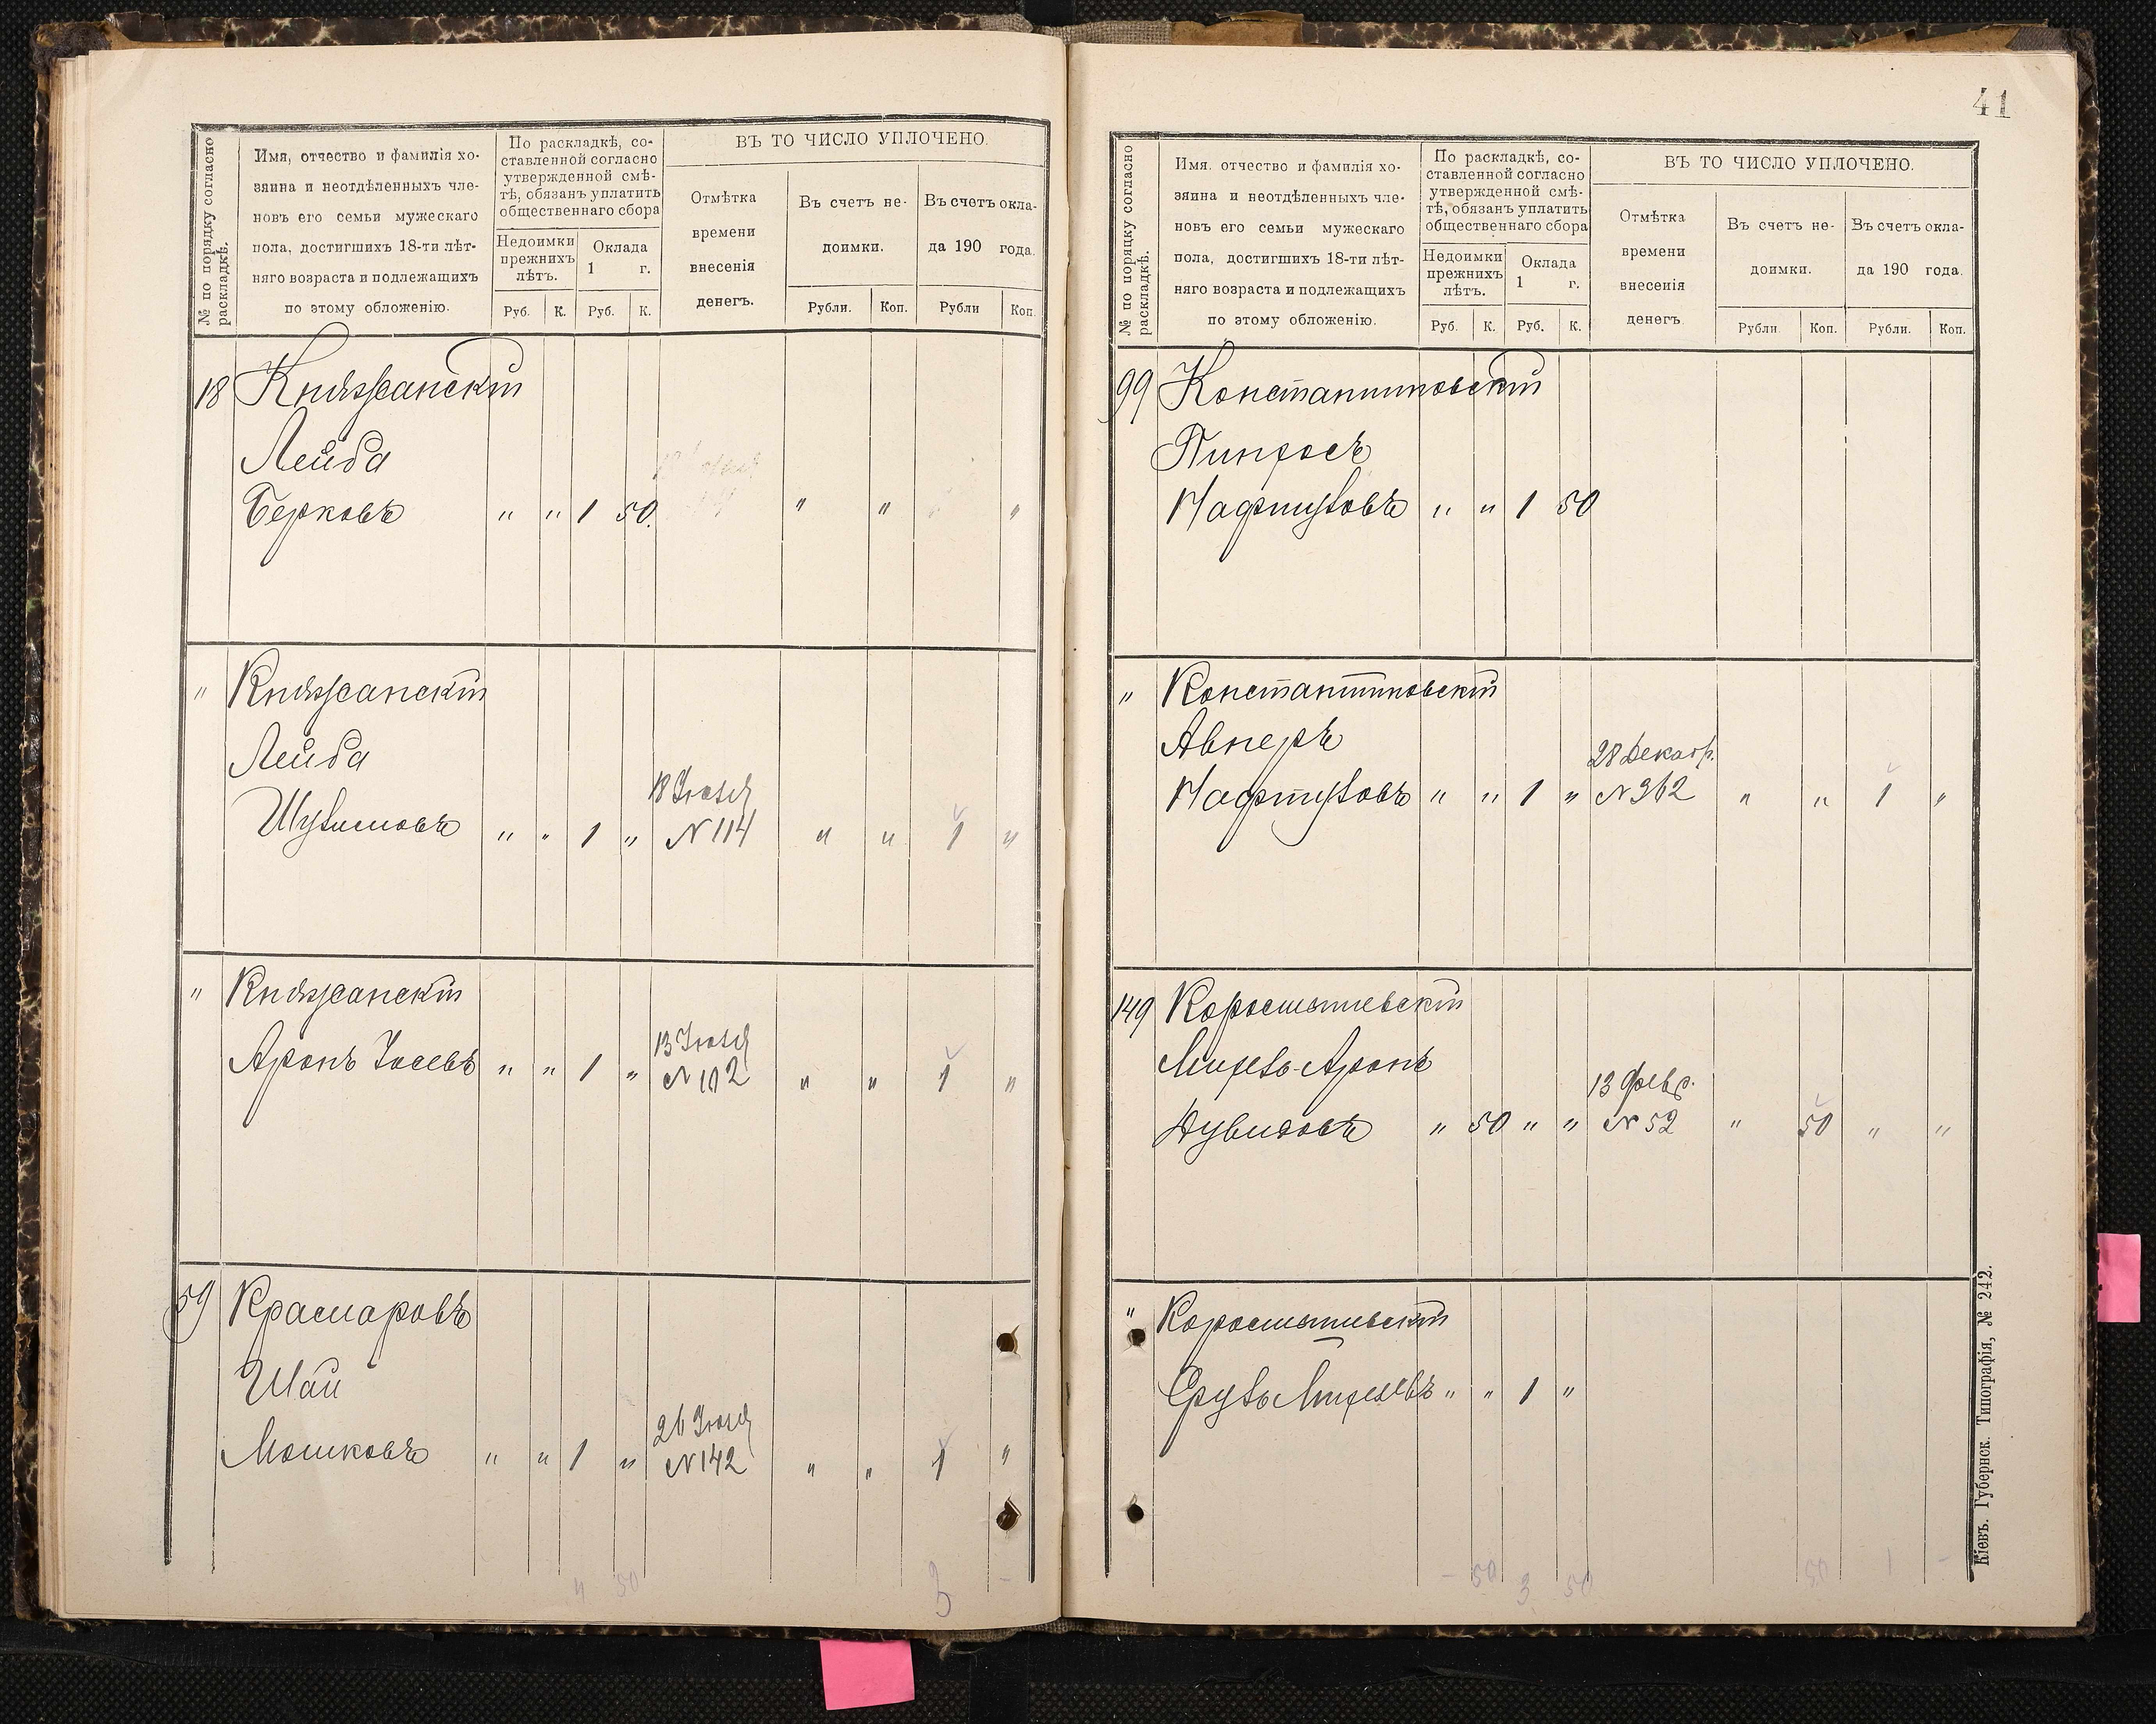 № по порядку согласно
раскладкѣ.
Имя, отчество и фамилія хо-
зяина и неотдѣленныхъ чле-
новъ его семьи мужескаго
пола, достигшихъ 18-ти лѣт-
няго возраста и подлежащихъ
по этому обложенію.
По раскладкѣ, со-
ставленной согласно
утвержденной смѣ-
тѣ, обязанъ уплатить
общественнаго сбора
Недоимки
прежнихъ
лѣтъ.
Оклада
1 г.
Руб. К. Руб. К.
ВЪ ТО ЧИСЛО УПЛОЧЕНО.
Отмѣтка
времени
внесенія
денегъ.
Въ счетъ не-
доимки.
Въ счетъ окла-
да 190 года.
Рубли. Коп. Рубли Коп.
18 Княжанскій
Лейба
Берковъ " " 1 50. " " "
" Княжанскій
Лейба
18 Іюля
Шулимовъ " " 1 " № 114 " " 1 "
" Княжанскій
13 Іюля
Аронъ Іосевъ " " 1 " № 102 " " 1 "
59 Красиаровъ
Шаи
26 Іюля
Мошковъ " " 1 " № 142 " " 1 "
4 50 3 -
41
№ по порядку согласно
раскладкѣ.
Имя, отчество и фамилія хо-
зяина и неотдѣленныхъ чле-
новъ его семьи мужескаго
пола, достигшихъ 18-ти лѣт-
няго возраста и подлежащихъ
по этому обложенію.
По раскладкѣ, со-
ставленной согласно
утвержденной смѣ-
тѣ, обязанъ уплатить
общественнаго сбора
Недоимки
прежнихъ
лѣтъ.
Оклада
1 г.
Руб. К. Руб. К.
ВЪ ТО ЧИСЛО УПЛОЧЕНО.
Отмѣтка
времени
внесенія
денегъ.
Въ счетъ не-
доимки.
Въ счетъ окла-
да 190 года.
Рубли Коп. Рубли. Коп.
99 Константиновскій
Пинхосъ
Нафтуловъ " " 1 50
" Константиновскій
Авнеръ
28 Декабр.
Нафтуловъ " " 1 " № 362 " " 1 "
149 Коростышевскій
Михель-Аронъ
13 Февр.
Дувидовъ " 50 " " № 52 " 50 " "
" Коростышевскій
Сруль Михелевъ " " 1 "
- 50 3 50 50 1 -
Кіевъ. Губернск. Типографія, № 242.